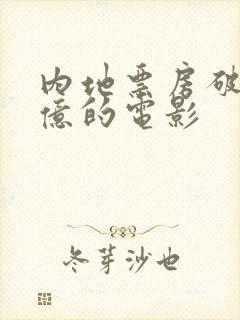 内地票房破
億的電影
冬芽沙也